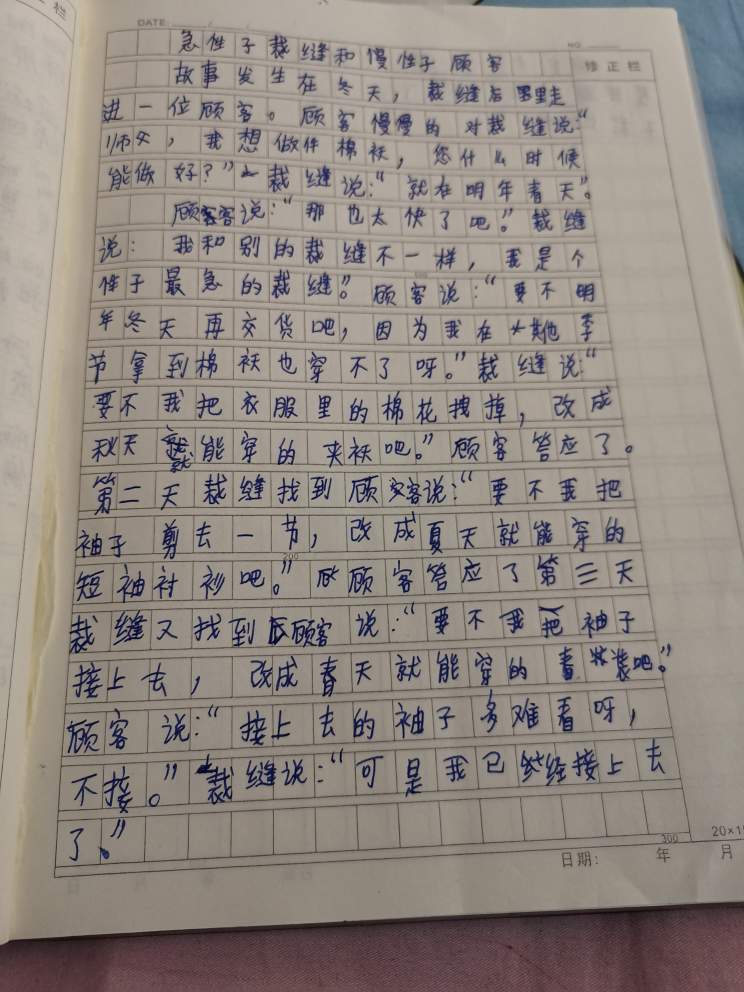 DATE:
NO
急性子裁缝和慢性子顾客
修正栏
故事发生在冬天，裁缝店里走
进一位顾客。顾客慢慢的对裁缝说:“
师父，我想做件棉袄，您什么时候
能做好?”裁缝说:“就在明年春天”。
顾客说:“那也太快了吧。”裁缝
说:我和别的裁缝不一样，我是个
性子最急的裁缝”。顾客说:“要不明
年冬天再交货吧，因为我在其他季
节拿到棉袄也穿不了呀。”裁缝说:“
要不我把衣服里的棉花拽掉，改成
秋天就能穿的夹袄吧。”顾客答应了。
第二天裁缝找到顾客说:“要不我把
袖子剪去一节，改成夏天就能穿的
200
短袖衬衫吧。”顾客答应了第三天
裁缝又找到顾客说:“要不我把袖子
接上去，改成春天就能穿的春装吧。”
顾客说:“接上去的袖子多难看呀，
不接。”裁缝说:“可是我已经接上去
了。”
300
20×15
日期: 年 月